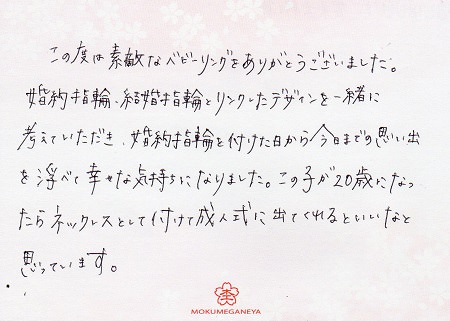 この度は素敵なベビーリングをありがとうございました。
婚約指輪、結婚指輪とリンクしたデザインを一緒に
考えていただき、婚約指輪を付けた日から今日までの思い出
を浮べて幸せな気持ちになりました。この子が20歳になっ
たらネックレスとして付けて成人式に出てくれるといいなと
思っています。
杢
MOKUMEGANEYA